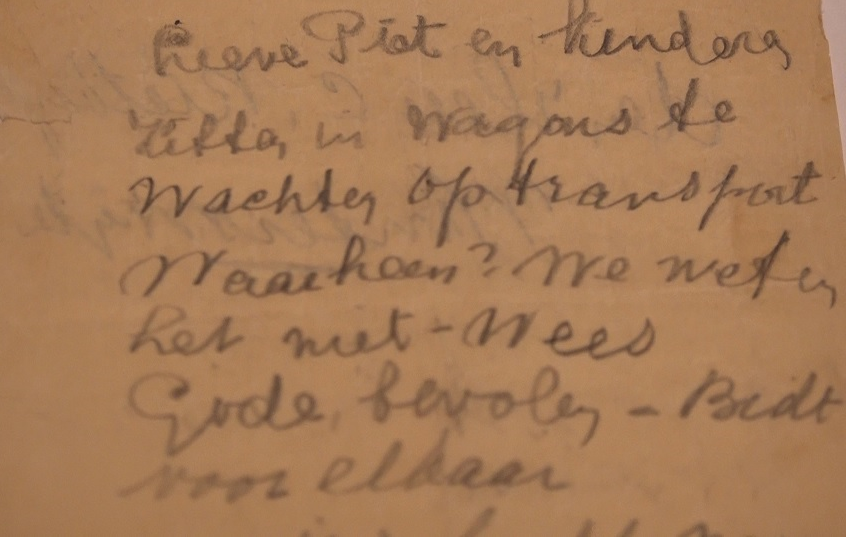 Lieve Piet en kinderen
Zitten in wagons te
Wachten op transport
Waarheen? We weten
het niet - Wees
Gode bevolen - Bidt
voor elkaar